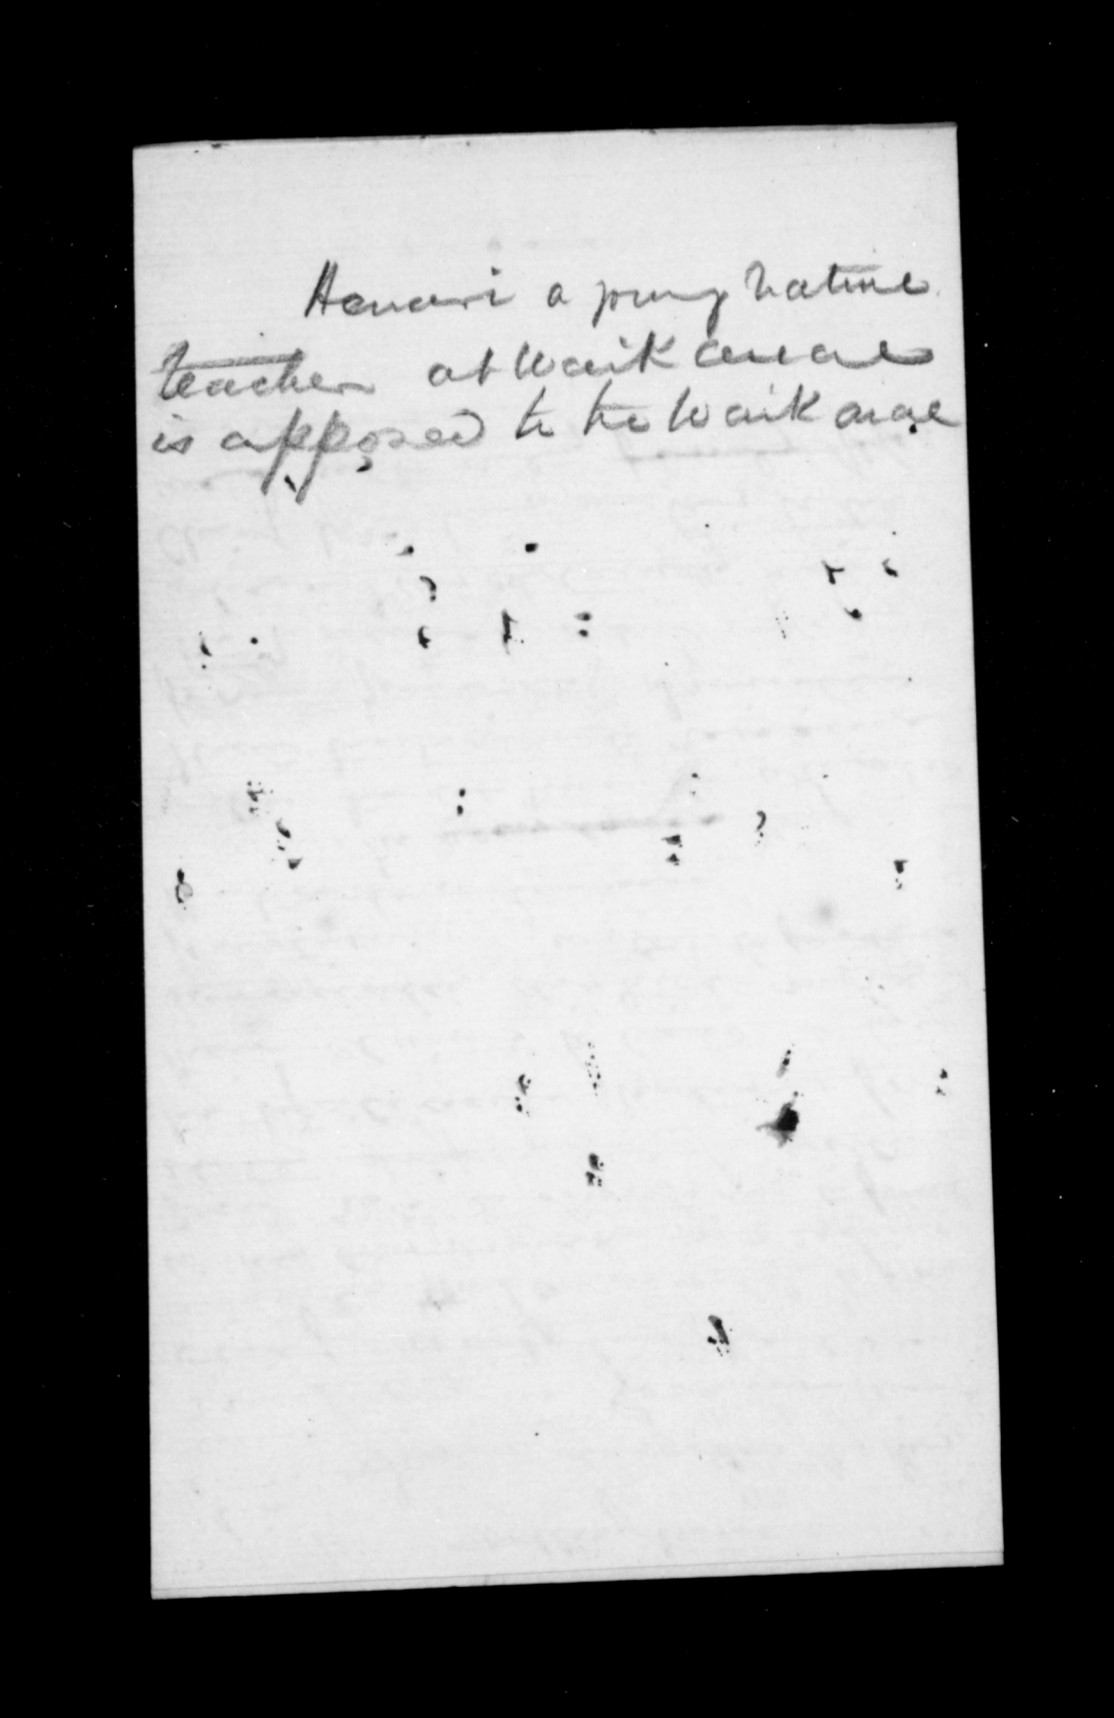 Henari a young native
teacher at Waikanae
is opposed to the Waikanae